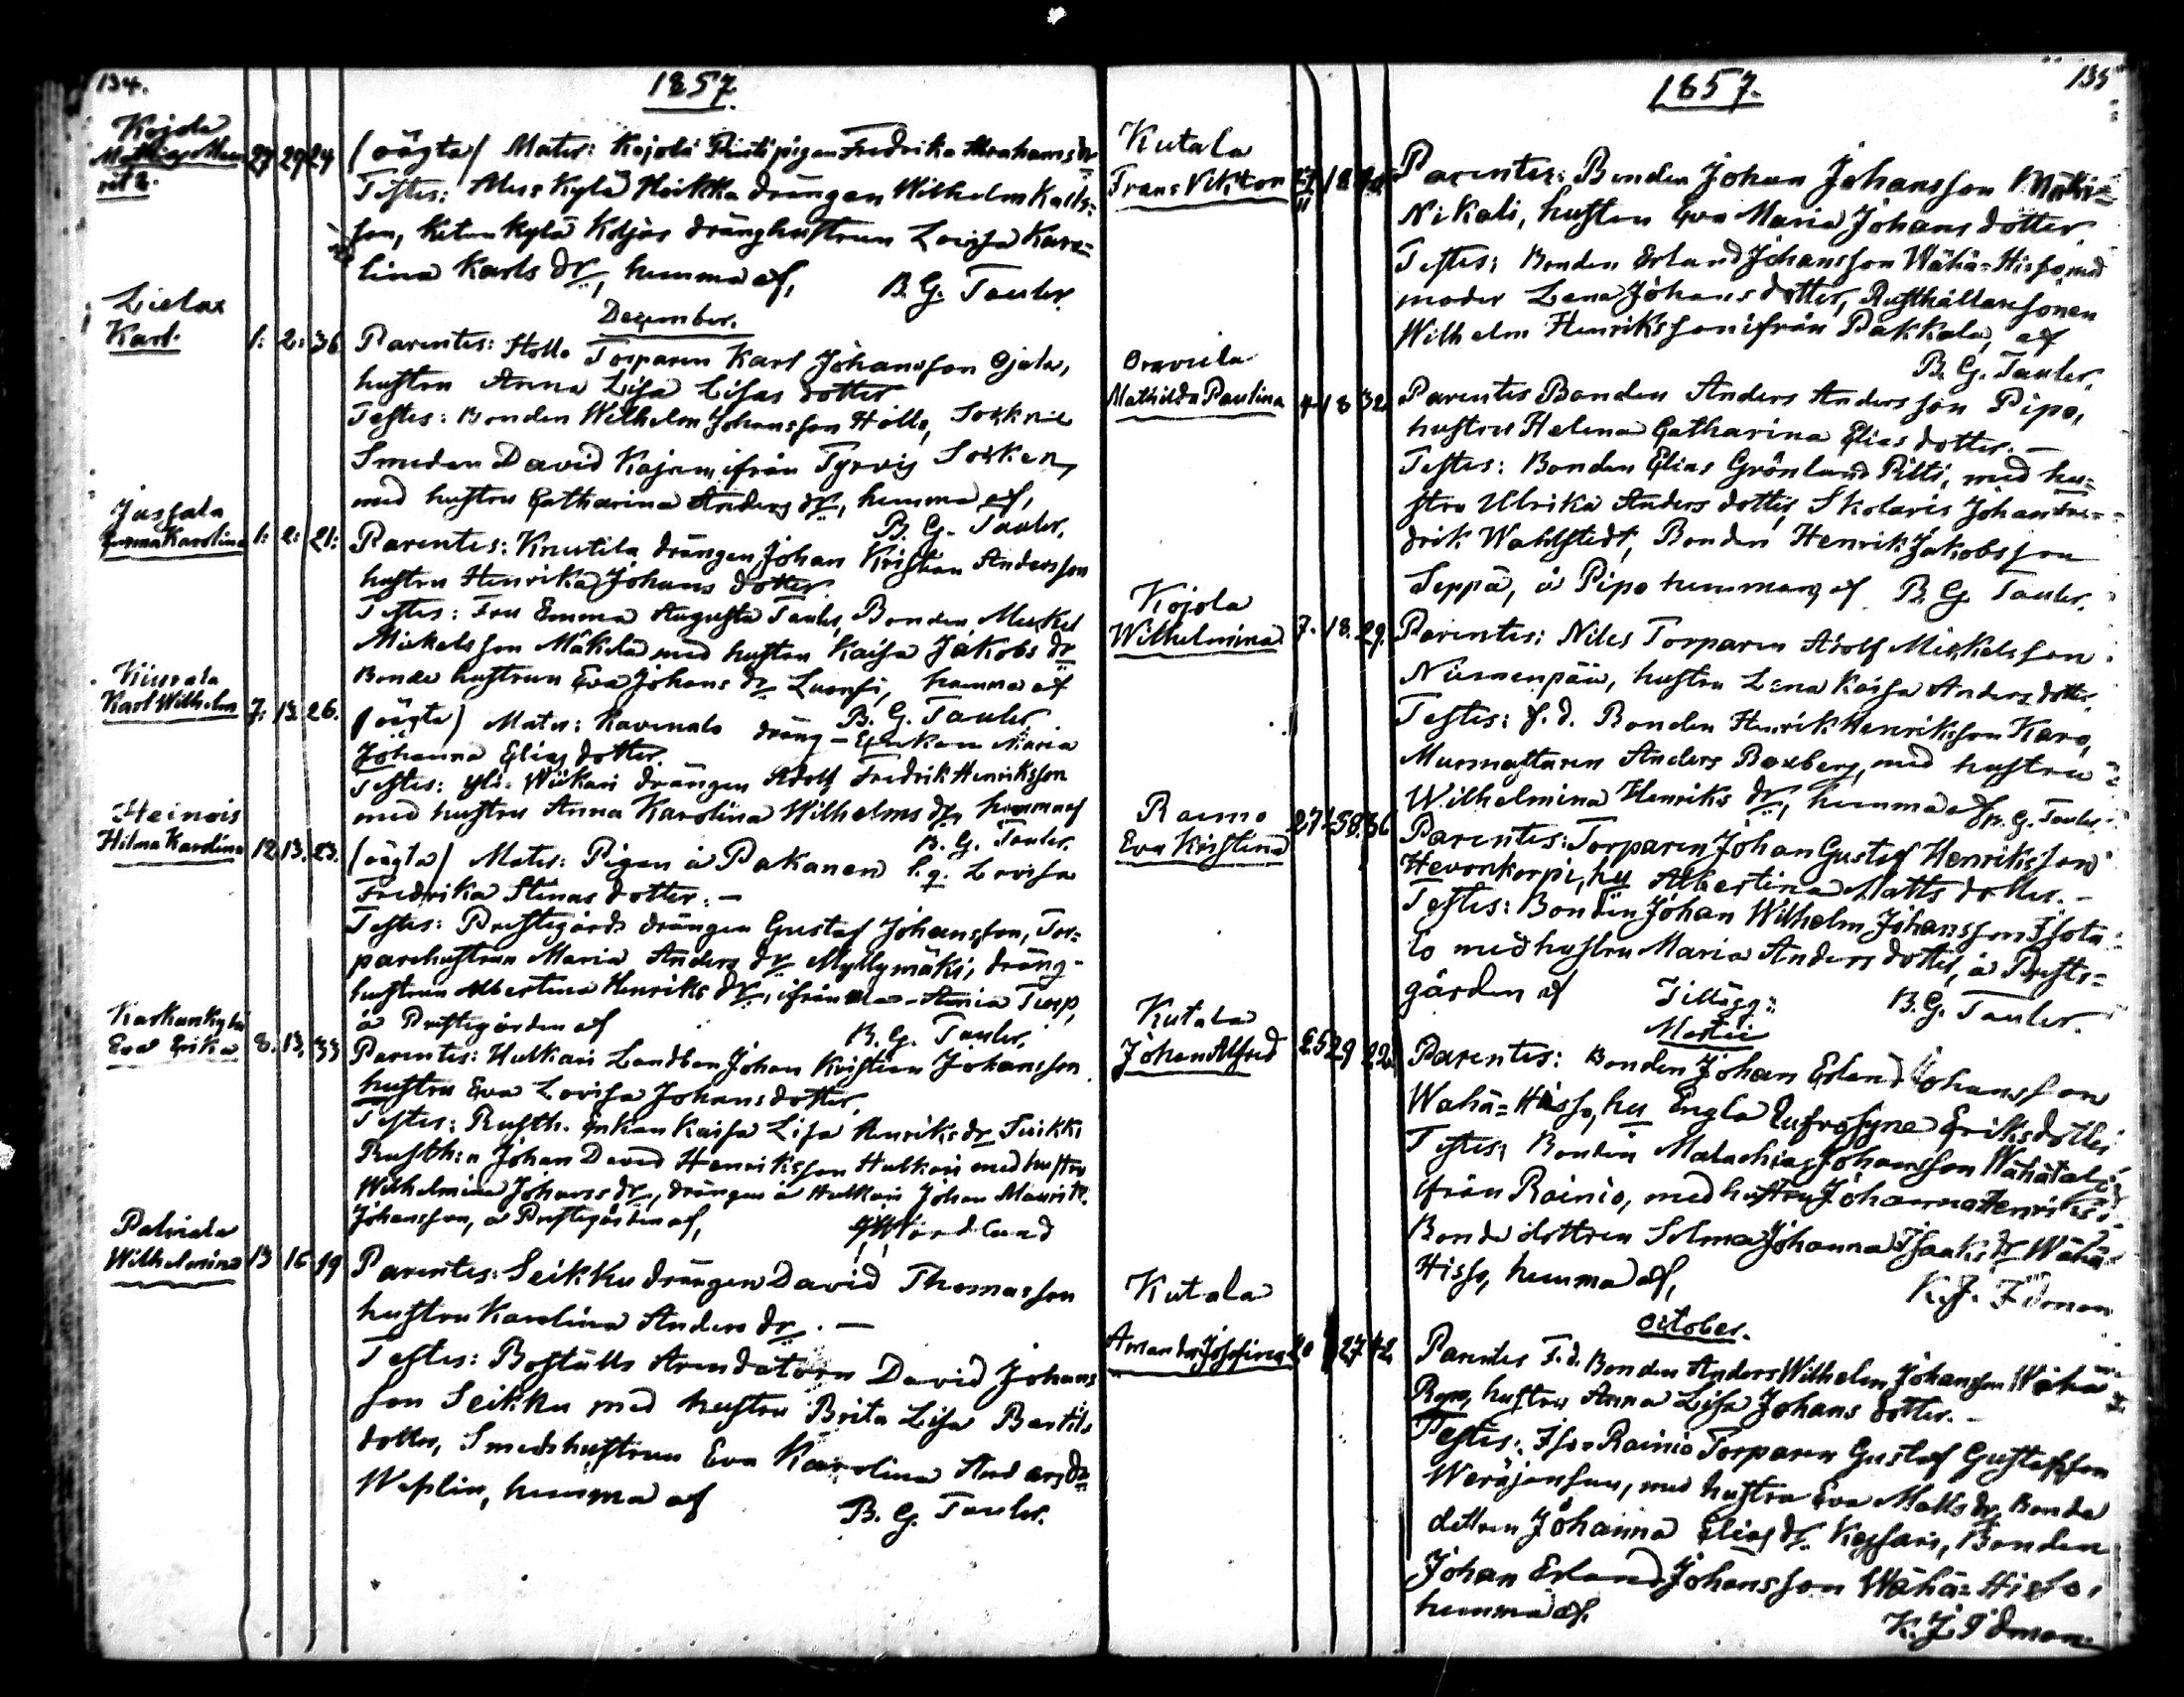 134.
1857.
Kojola
27 29 24
(oägta) Mater: Kojola Pigan Fredrika Abrahams dr
Testes: Alus Kylä Heikka drängen Wilhelm Karls-
son, Ketunkylä dränghustrun Lovisa Karo-
lina Karls dr, hemma af, B. G. Tauler.
December.
Lielax
Karl. 1: 2: 36
Parentes: Hollo Torparen Karl Johansson Ojala,
hustru Anna Lisa Lisas dotter
Testes: Bonden Wilhelm Johansson Hollo, Sockne
Smeden David ifrån Tyrvis Socken,
med hustru Catharina Anders dr, hemma af,
B. G. Tauler.
Jussala
Emma Karolina 1: 2: 21:
Parentes: Knutila drängen Johan Kristian Andersson
hustru Henrika Johans dotter.
Testes: Fru Emma Augusta Tauler, Bonden Mickel
Mickelsson Mäkelä med hustru Kaisa Jakobs dr
Bonde hustrun Eva Johans dr Luonsi, hemma af
B. G. Tauler.
Kiurala
Karl Wilhelm 7. 13. 26.
(oägta) Mater: Kavenala dräng-Enkan Maria
Johanna Elias dotter.
Testes: Yli-Wiikari drängen Adolf Fredrik Henriksson
med hustru Anna Karolina Wilhelms dr, hemma af
B. G. Tauler.
Heinois
Hilma Karolina 12 13. 23.
(oägta) Mater: Pigan å Pakanen l.q. Lovisa
Fredrika Stinas dotter. —
Testes: Prestegårds drängen Gustaf Johansson, Tor-
parehustrun Maria Anders dr Myllymäki, dräng-
hustrun Albertina Henriks dr, ifrån
å Prestegården af B. G. Tauler.
Karhunkylä
Eva Erika 8. 13. 33
Parentes: Hulkari Landbon Johan Kristian Johansson
hustru Eva Lovisa Johansdotter.
Testes: Rusth. Enkan Kaisa Lisa Henriks dr Tuikki
Rusth:n Johan David Henriksson Hulkari med hustru
Wilhelmina Johans dr, drängen å Hulkari Johan Maurits
Johansson, å Prestegården af,
Palviala
Wilhelmina 13 16 19
Parentes: Seikku drängen David Thomasson
hustru Karolina Anders dr. —
Testes: Boställs Arendatorn David Johans
son Seikku med hustru Brita Lisa Bertils
dotter, Smedshustrun Eva Karolina Anders dr
Weplin, hemma af B. G. Tauler.
135
1857.
Kutala
Frans Viktor 27 18
Parentes: Bonden Johan Johansson Mäki-
Nikali, hustru Eva Maria Johans dotter.
Testes: Bonden Erland Johansson Wähä-Hisso med
moder Lena Johans dotter, Rusthållaresonen
Wilhelm Henriksson ifrån Pakkala, af
B. G. Tauler.
Oravula
Mathilda Paulina 4 18 32
Parentes Bonden Anders Andersson Pipo,
hustru Helena Catharina Elias dotter. —
Testes: Bonden Elias Grönlund Piltti, med hu-
stru Ulrika Anders dotter, Skolaris Johan Fre-
drik Wahlstedt, Bonden Henrik Jakobsson
Seppä, å Pipo hemman, af B. G. Tauler.
Kojola
Wilhelmina 7. 18. 29.
Parentes: Niles Torparen Adolf Mickelsson
Niemenpää, hustru Lena Kaisa Anders dotter.
Testes: f. d. Bonden Henrik Henriksson Karo,
Murmästaren Anders Boxberg, med hustru
Wilhelmina Henriks dr, hemma af B. G. Tauler.
Raimo
Eva Kristina 27 36
Parentes: Torparen Johan Gustaf Henriksson
Hevonkorpi, hu Albertina Matts dotter. —
Testes: Bonden Johan Wilhelm Johansson Isota-
lo med hustru Maria Anders dotter, å Prests-
gården af B. G. Tauler.
Tillägg:
Martii
Kutala
Johan Alfred 25 29 22
Parentes: Bonden Johan Erland Johansson
Wahä-Hisso, hu Engla Eufrosyne Eriksdotter
Testes: Bonden Malachias Johansson Wähätalo
ifrån Rainio, med hustru Johanna Henriks
Bonde dottren Selma Johanna Isaks dr Wähä-
Hisso, hemma af, K. J. Idman
October.
Kutala
Amanda Josefina 20 27 42
Parentes F.d. Bonden Anders Wilhelm Johansson Wähä
Repo, hustru Anna Lisa Johans dotter. —
Testes: Iso-Rainio Torparen Gustaf Gustafsson
Weräjänsuu, med hustru Eva Matts dr, Bonde
dottren Johanna Elias dr Kessari, Bonden
Johan Erland Johansson Wähä-Hisso,
hemma af. K. J. Idman.